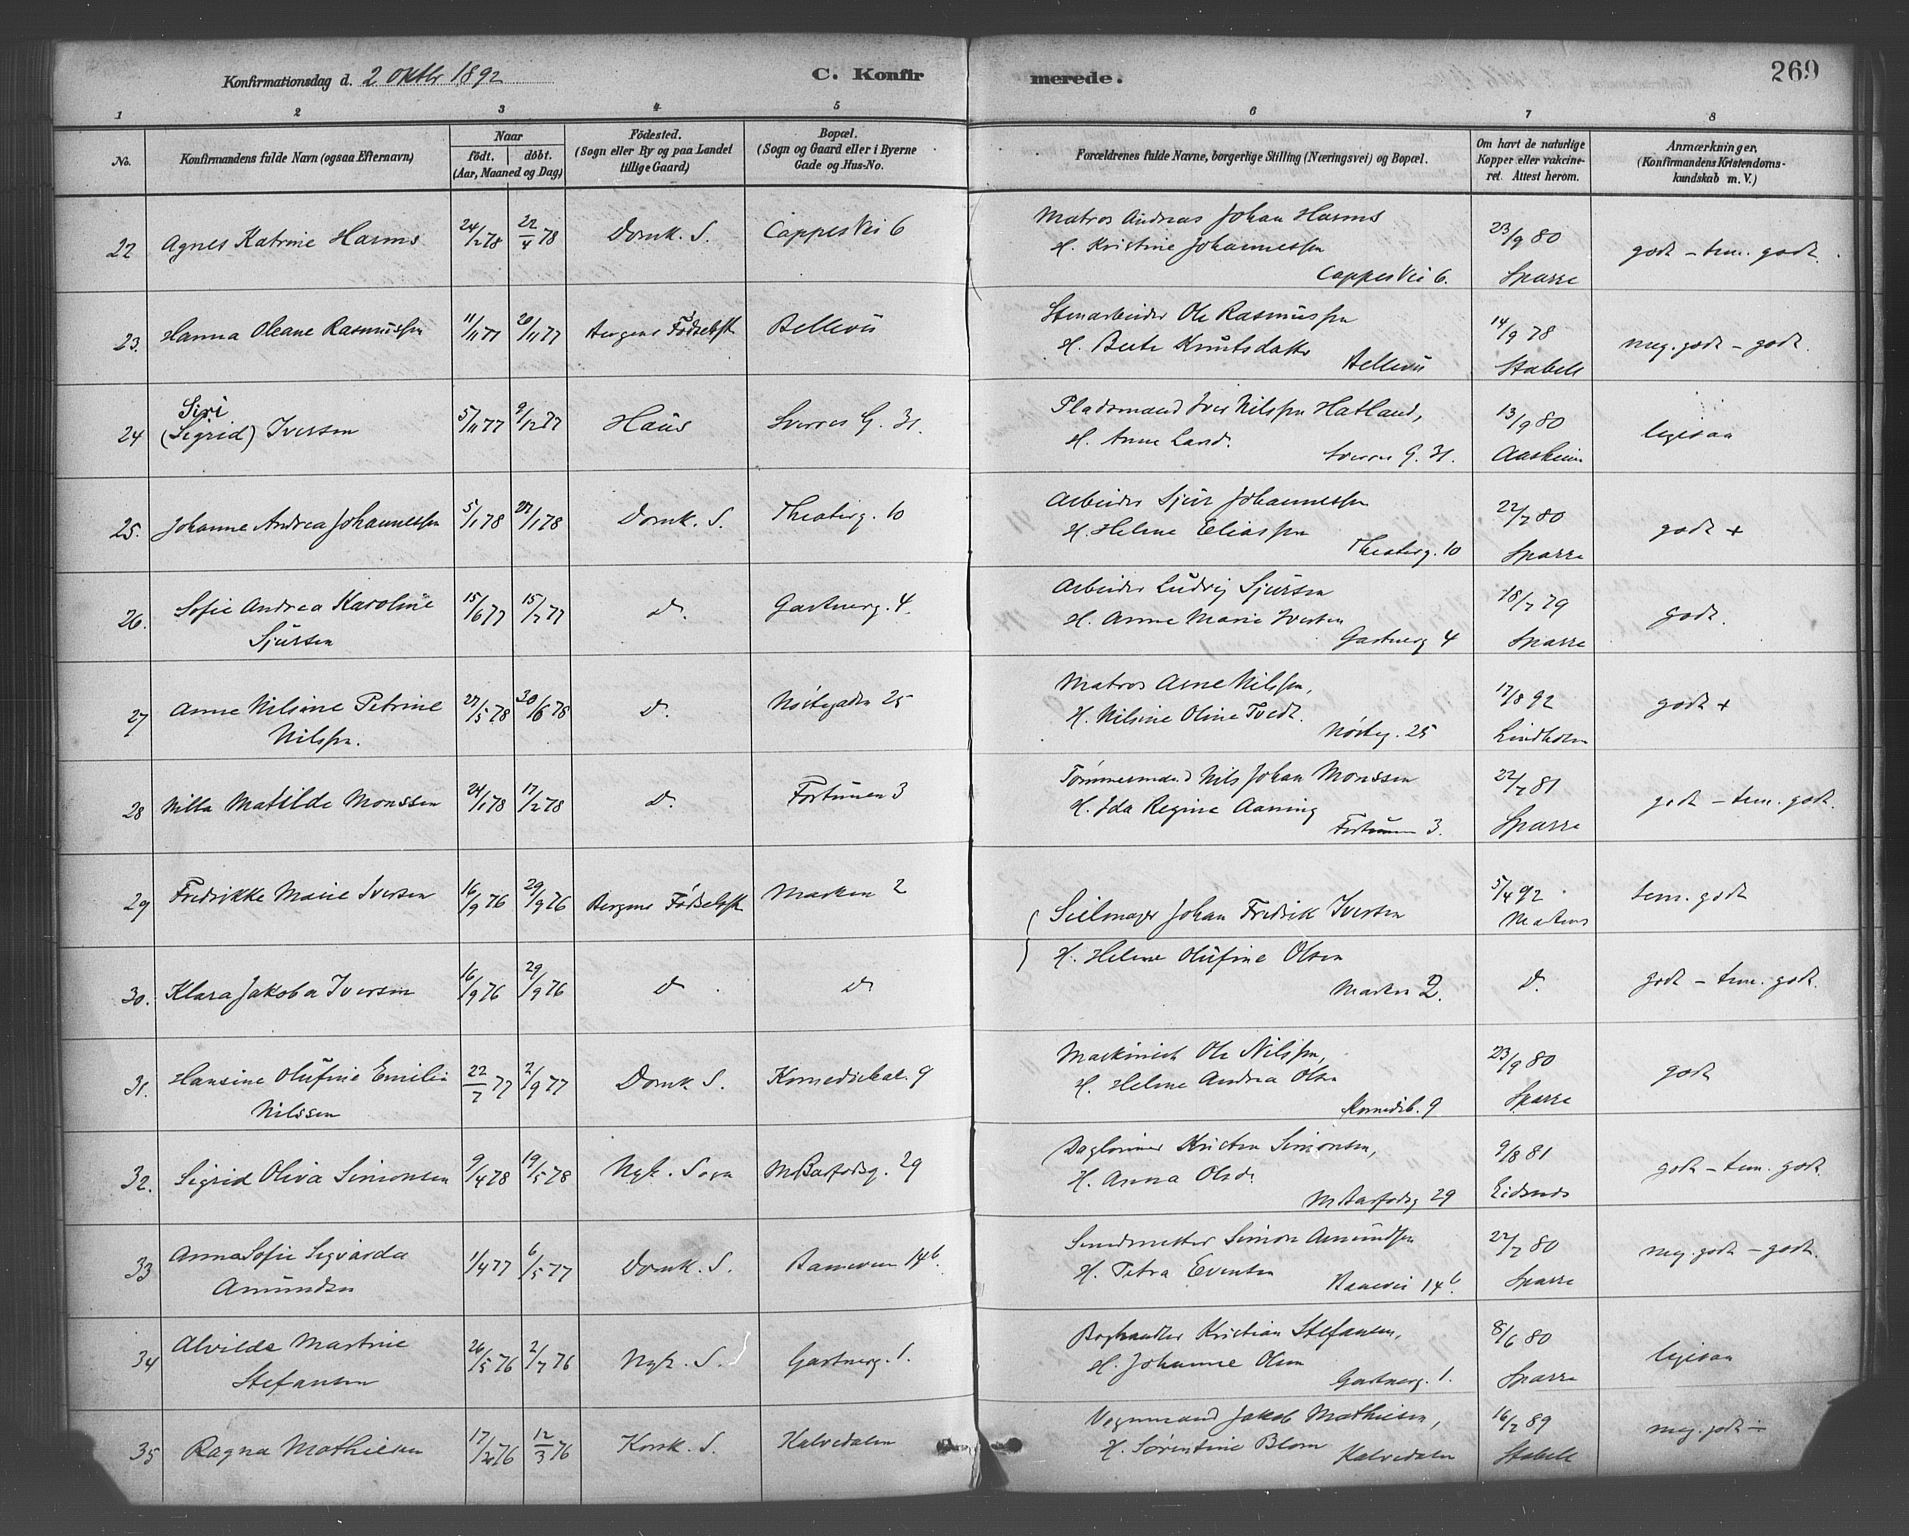 Konfirmationsdag d. 2 Oktbr 1892 C. Konfirmerede. 269
1 2 3 4 5 6 7 8
No. Konfirmandens fulde Navn (ogsaa Efternavn) Naar født. døbt. (Aar, Maaned og Dag) Födested. (Sogn eller By og paa Landet tillige Gaard) Bopæl. (Sogn og Gaard eller i Byerne Gade og Hus-No. Forældrenes fulde Navne, borgerlige Stilling (Næringsvei) og Bopæl. Om havt de naturlige Kopper eller vakcineret. Attest herom. Anmærkninger, (Konfirmandens Kristendomskundskab m. V.)
22 Agnes Katrine Harms 24/2 78 22/4 78 Domk. S. Cappes Vei 6 Matros Andreas Johan Harms 23/9 80 godt – tem. godt.
H. Kristine Johannessen
Cappes Vei 6. Sparre
23. Hanna Oleane Rasmussen 11/11 77 20/11 77 Bergens Fødselsst Bellevü Stenarbeider Ole Rasmussen 14/9 78 meg. godt – godt.
H. Berte Knutsdatter
Bellevü Stabell
24 Siri (Sigrid) Iversen 5/11 77 9/12 77 Haus Sverres G. 31. Pladsmand Iver Nilssen Hatland, 13/9 80 ligesaa
H. Anne Larsd.
Sverres G. 31. Aasheim
25. Johanne Andrea Johannessen 5/1 78 27/1 78 Domk. S. Theaterg. 10 Arbeider Sjur Johannessen 22/7 80 godt +
H. Helene Eliassen
Theaterg. 10 Sparre
26. Sofie Andrea Karoline Sjursen 15/6 77 15/7 77 D. Gartnerg. 4. Arbeider Ludvig Sjursen 18/7 79 godt.
H. Anne Marie Iversen
Gartnerg 4 Sparre
27 Anne Nilsine Petrine Nilssen. 27/5 78 30/6 78 D. Nöstegaden 25 Matros Arne Nilssen, 17/8 92 godt +
H. Nilsine Oline Tvedt.
Nösteg. 25 Lindholm
28 Nilla Matilde Monssen 24/1 78 17/2 78 D. Fortunen 3 Tømmermand Nils Johan Monssen 22/7 81 godt – tem. godt.
H. Ida Regine Aaning
Fortunen 3. Sparre
29 Fredrikke Marie Iversen 16/9 76 29/9 76 Bergens Fødselsst Marken 2 Seilmager Johan Fredrik Iversen 5/4 92 tem. godt
30. Klara Jakoba Iversen 16/9 76 29/9 76 D D H. Helene Olufine Olsen D. godt – tem. godt.
Marken 2.
31. Hansine Olufine Emilie Nilssen 22/7 77 2/9 77 Domk S. Komediebak. 9 Maskinist Ole Nilssen, 23/9 80 godt
H. Helene Andrea Olsen
Komedieb. 9 Sparre
32. Sigrid Oliva Simonsen 9/4 78 19/5 78 Nyk. Sogn M Barfodsg. 29 Dagleiner Kristen Simonsen, 9/8 81 godt – tem. godt
H. Anna Olsdr
M Barfodsg 29
33 Anna Sofie Sigvarda Amundsen 1/4 77 6/5 77 Domk. S. Baneveien 14 b. Smedmester Simon Amundsen 22/7 80 meg. godt – godt.
H. Petra Eventsen
Banevei 14 b. Sparre
34 Alvilde Martine Stefansen 26/5 76 2/7 76 Nyk. S. Gartnerg. 1. Boghandler Kristian Stefansen, 8/6 80 ligesaa
H. Johanne Olsen
Gartnerg. 1. Sparre
35 Ragna Mathiesen 17/2 76 12/3 76 Korsk. S. Kalvedalen Vognmand Jakob Mathiesen, 16/7 89 meg. godt ÷
H. Sørentine Blom
Kalvedalen Stabell